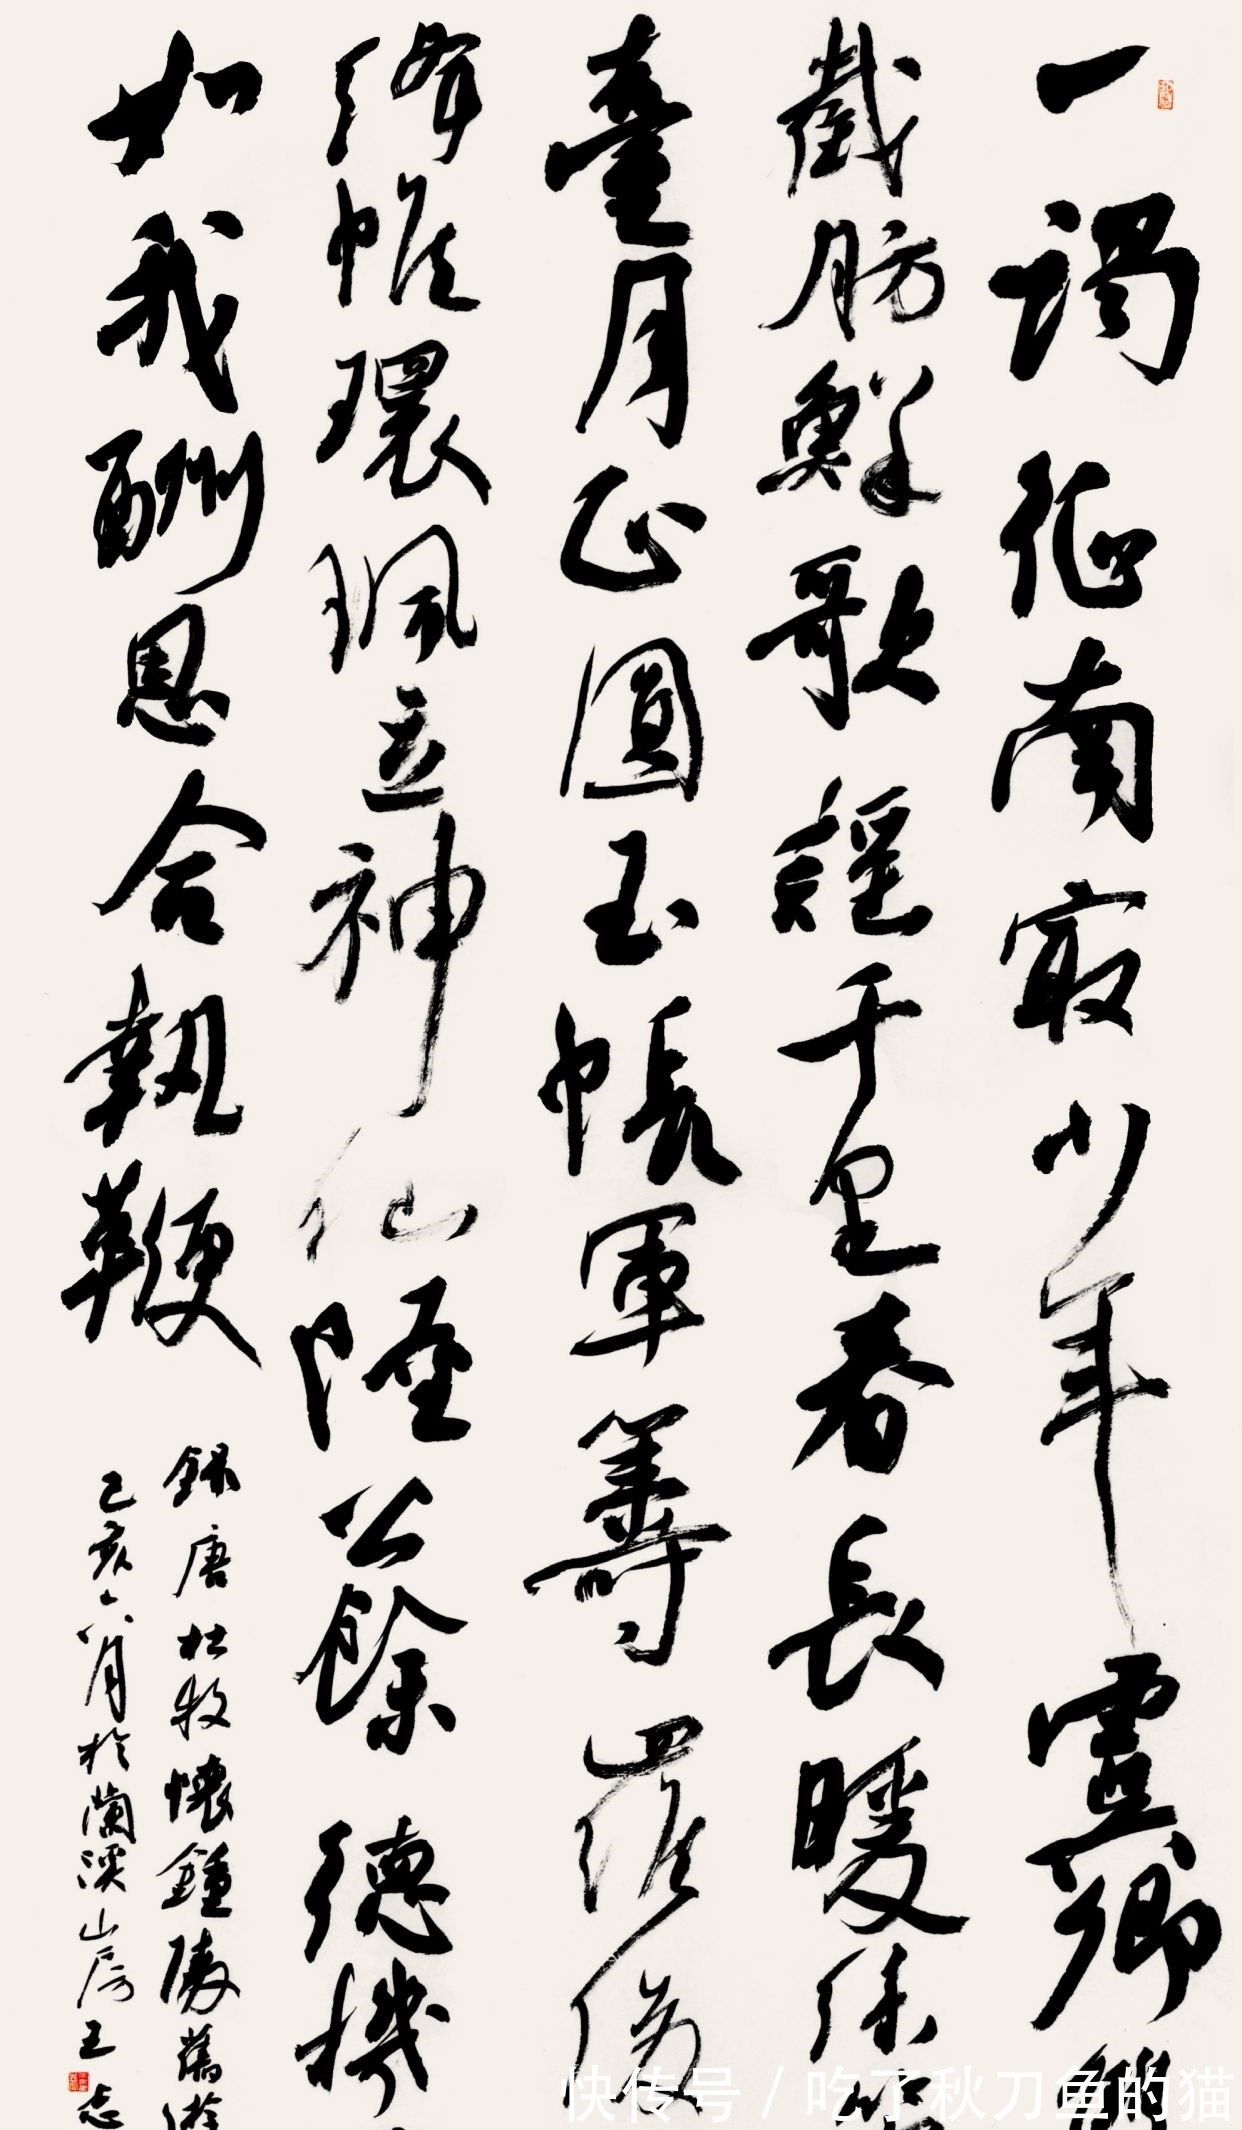 一謁征南最少年虞卿
截肪鮮歌謠千里春長暖絲
臺月正圓玉帳軍籌羅俊
絳帷環珮立神仙陸公餘德機
如我酬恩合執鞭
錄唐杜牧懷鍾陵舊遊
己亥六月於蘭溪山房王志
快传号 / 吃了秋刀鱼的猫